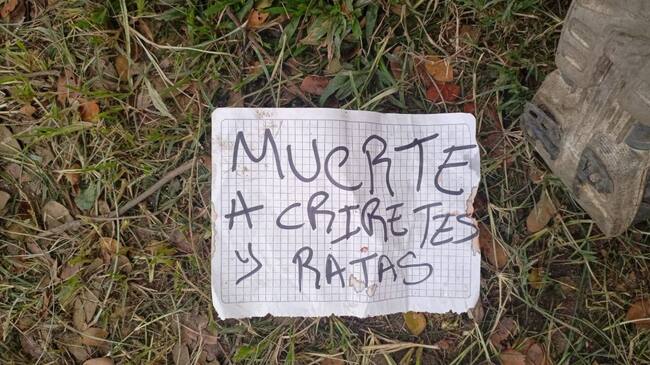 MUCRTE
A CRIRETES
Y RATAS